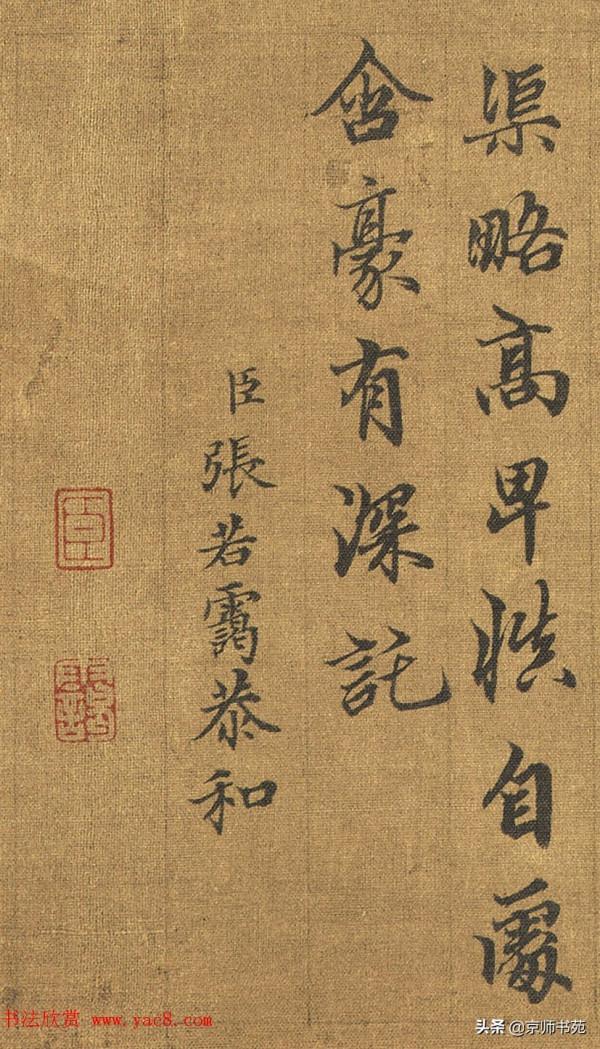 渠略高卑慎自處
含豪有深託
臣張若靄恭和
书法欣赏 www.yac8.com
头条 @京师书苑